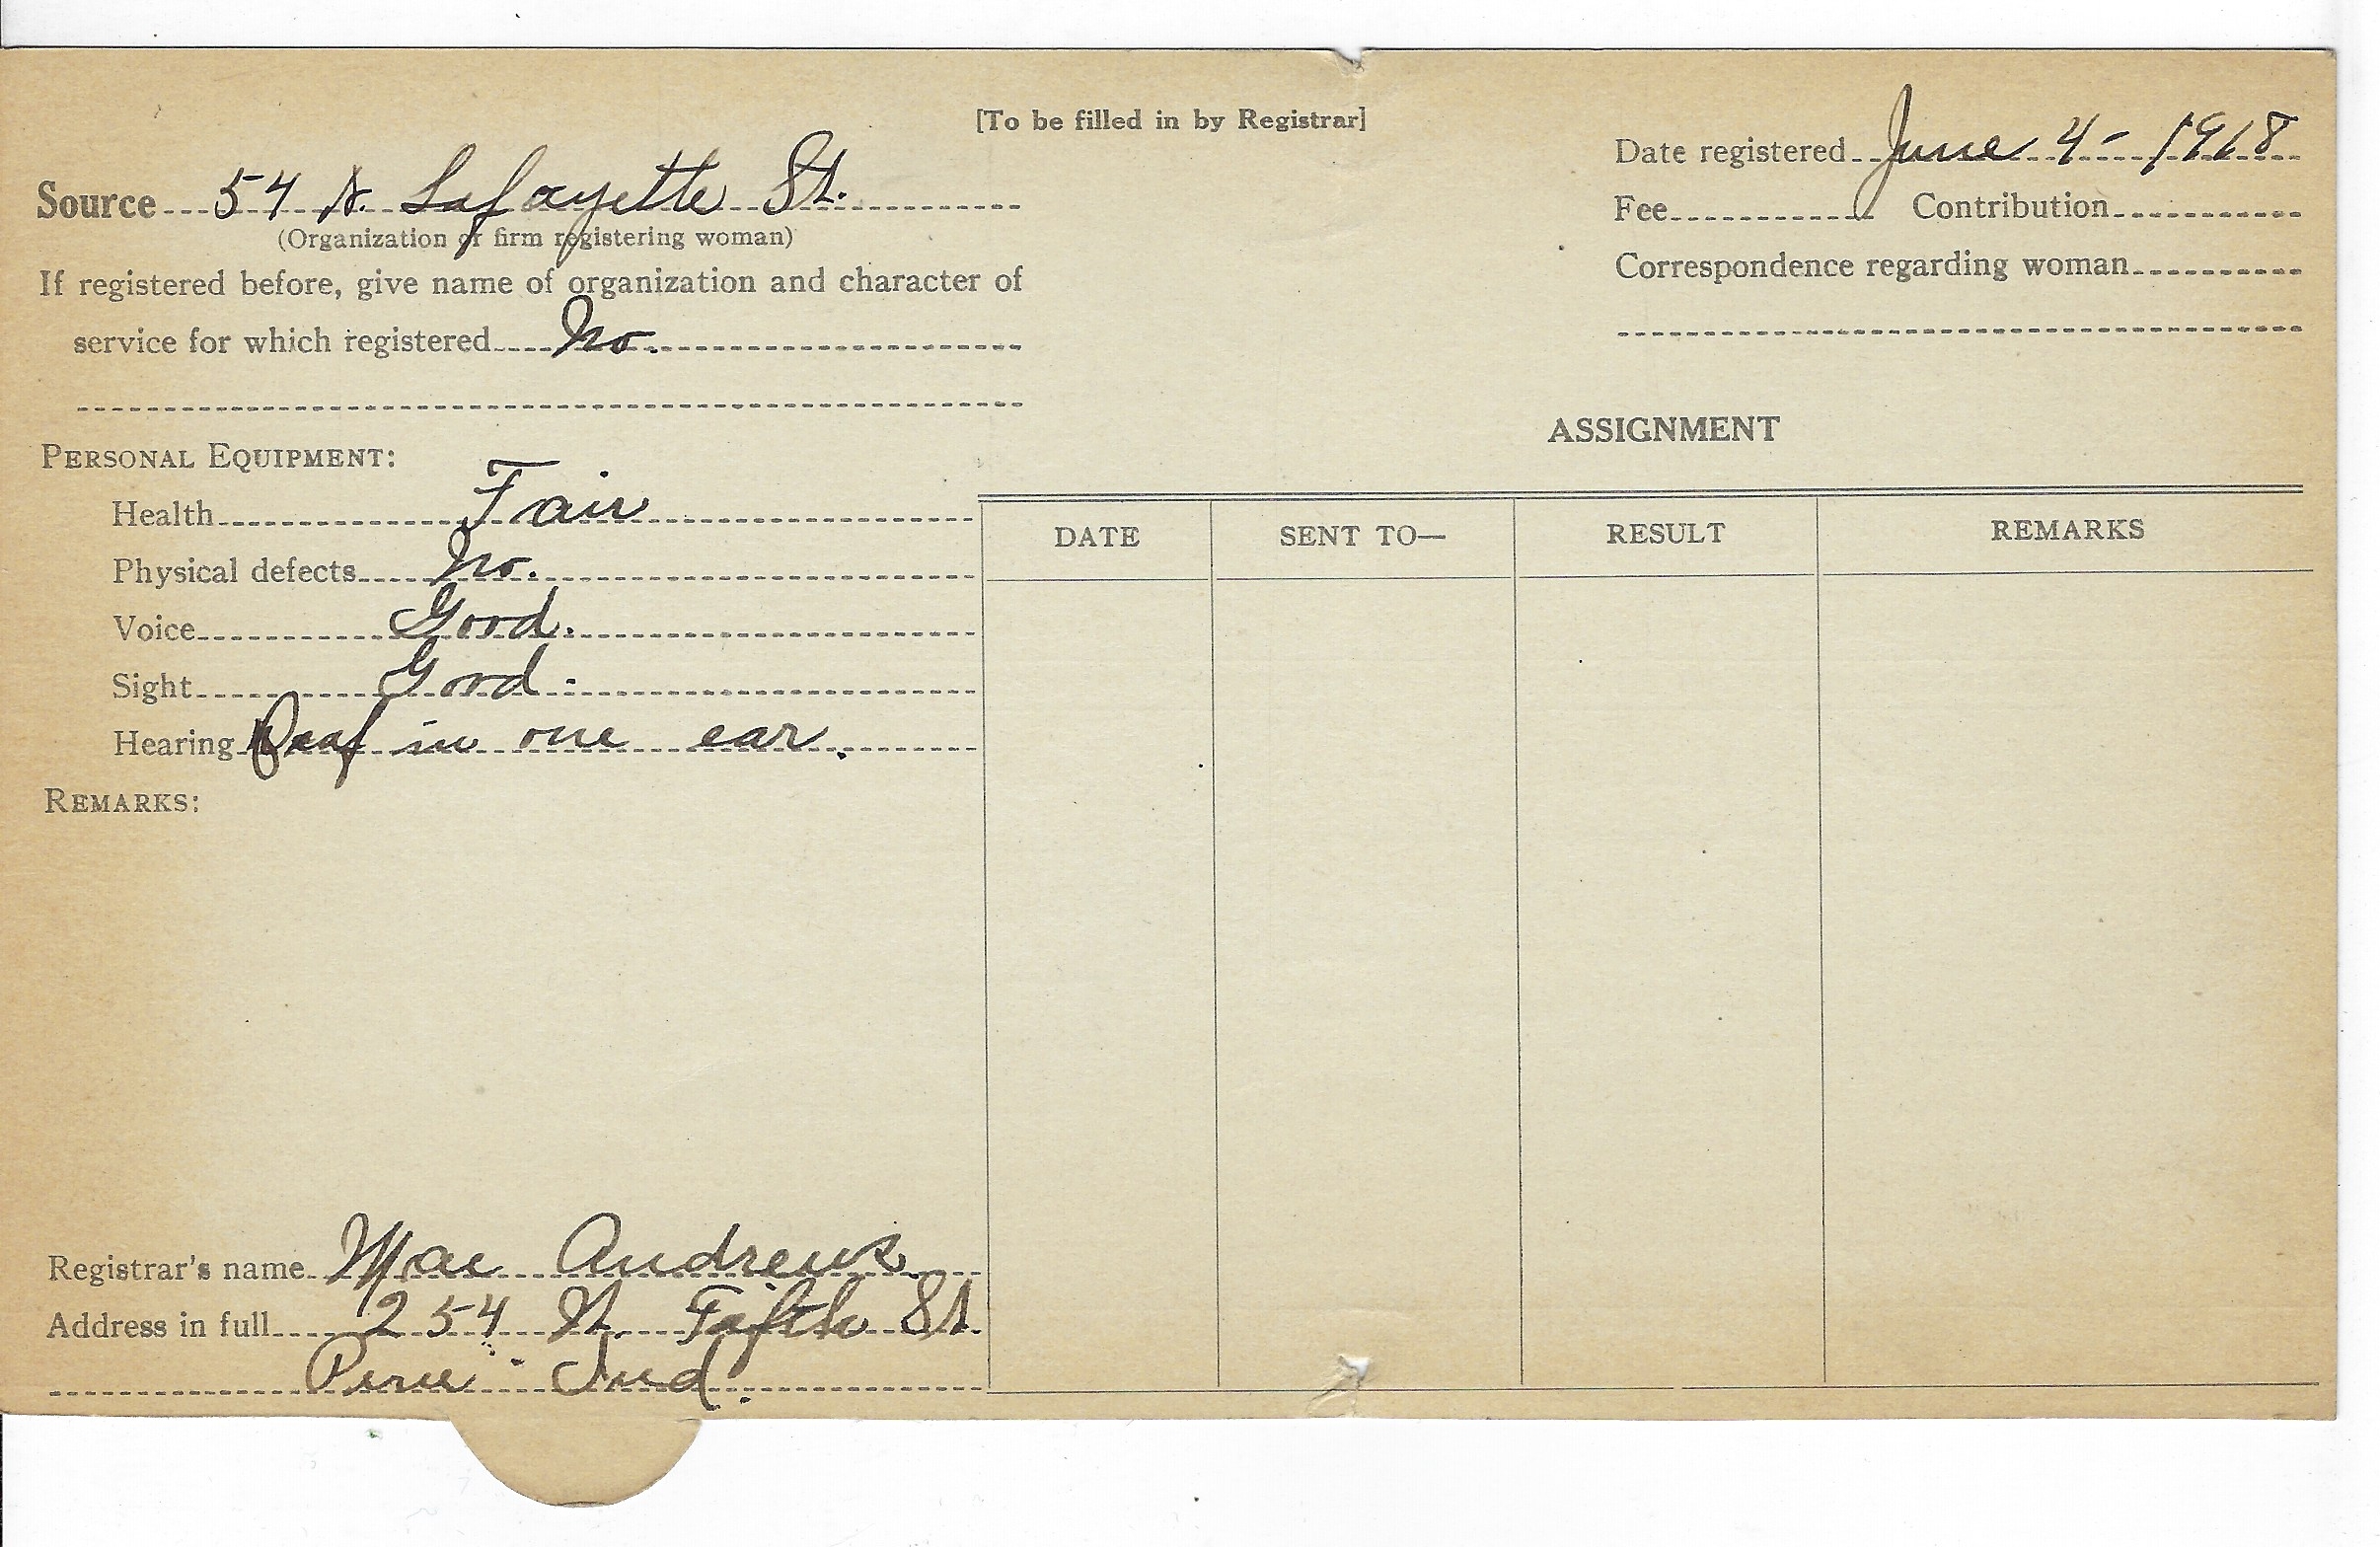 [To be filled in by Registrar]
Source 54 N. Lafayette St.
(Organization or firm registering woman)
If registered before, give name of organization and character of
service for which registered No.
Date registered June 4- 1918
Fee Contribution
Correspondence regarding woman
PERSONAL EQUIPMENT:
Health Fair
Physical defects No.
Voice Good.
Sight Good.
Hearing Deaf in one ear.
REMARKS:
ASSIGNMENT
DATE SENT TO— RESULT REMARKS
Registrar's name Mae Andrews
Address in full 254 Fifth St.
Peru Ind.